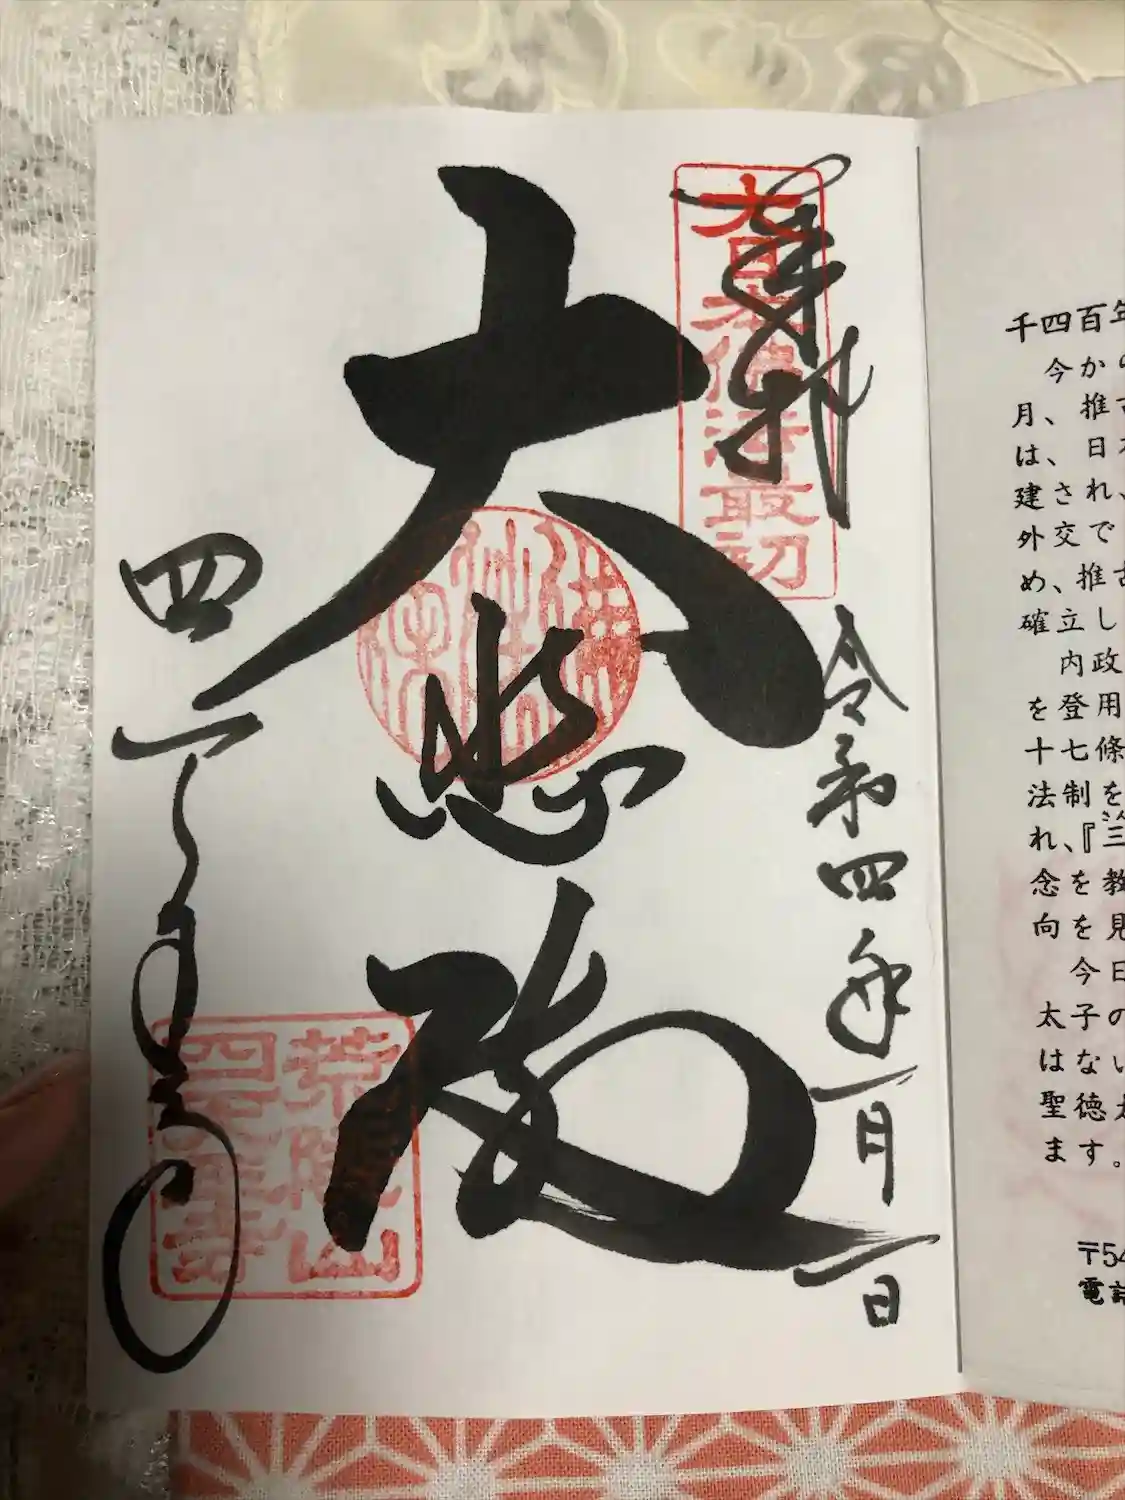 千四百年
今から
月、推古
は、日本
建され、
外交で
め、推古
確立し
内政
を登用
十七條
法制を
れ、『三
念を教
向を見
今日
太子の
はない
聖徳太
ます。
〒54
電話
奉拝
大日本佛法最初
令和四年一月一日
大悲殿
荒陵山
四天王寺
四天王寺